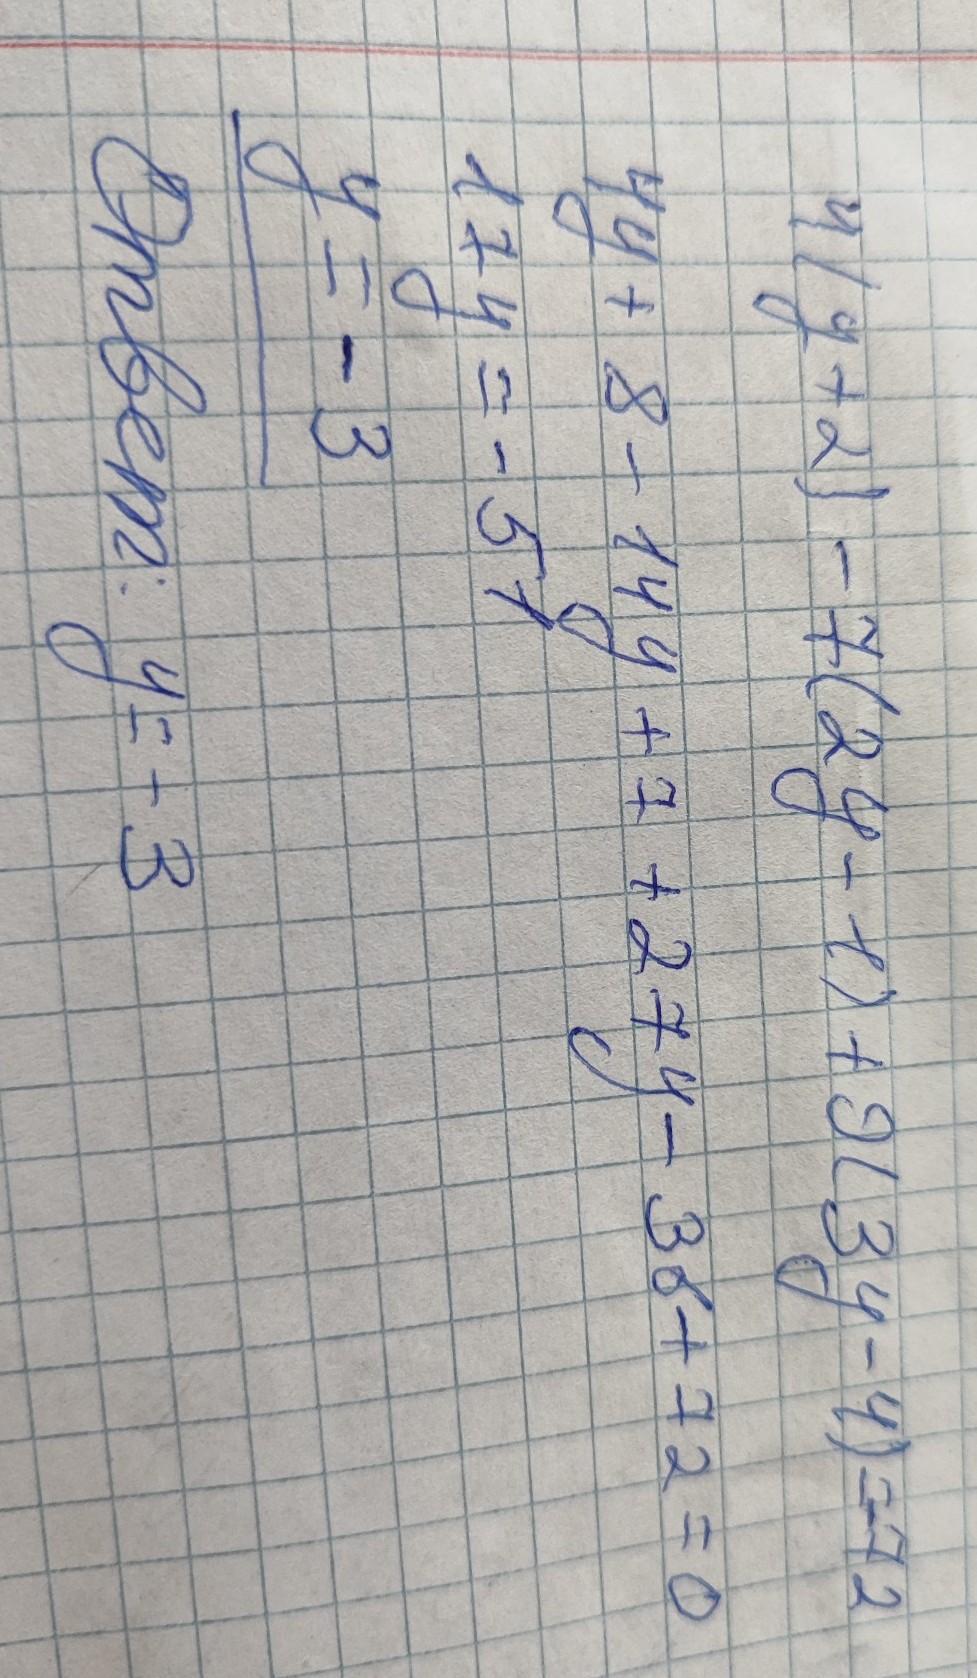 4(y+2)-7(2y-1)+9(3y-4)=-72
4y+8-14y+7+27y-36+72=0
17y=-51
y=-3
Ответ: y=-3